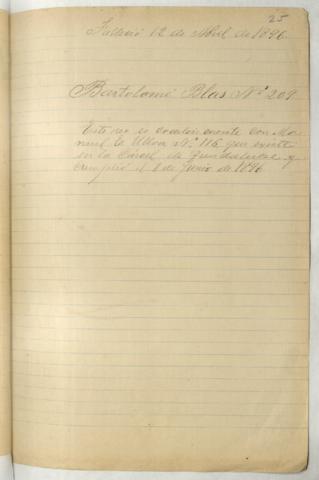 25
Falleció 12 de Abril de 1896.
Bartolomé Blas Nº 209
Este reo se cree ser mente con Ma-
nuel la Ulloa Nº 116 que existe
en la Cárcel de Guadalupe y
cumplió el 1 de Junio de 1896